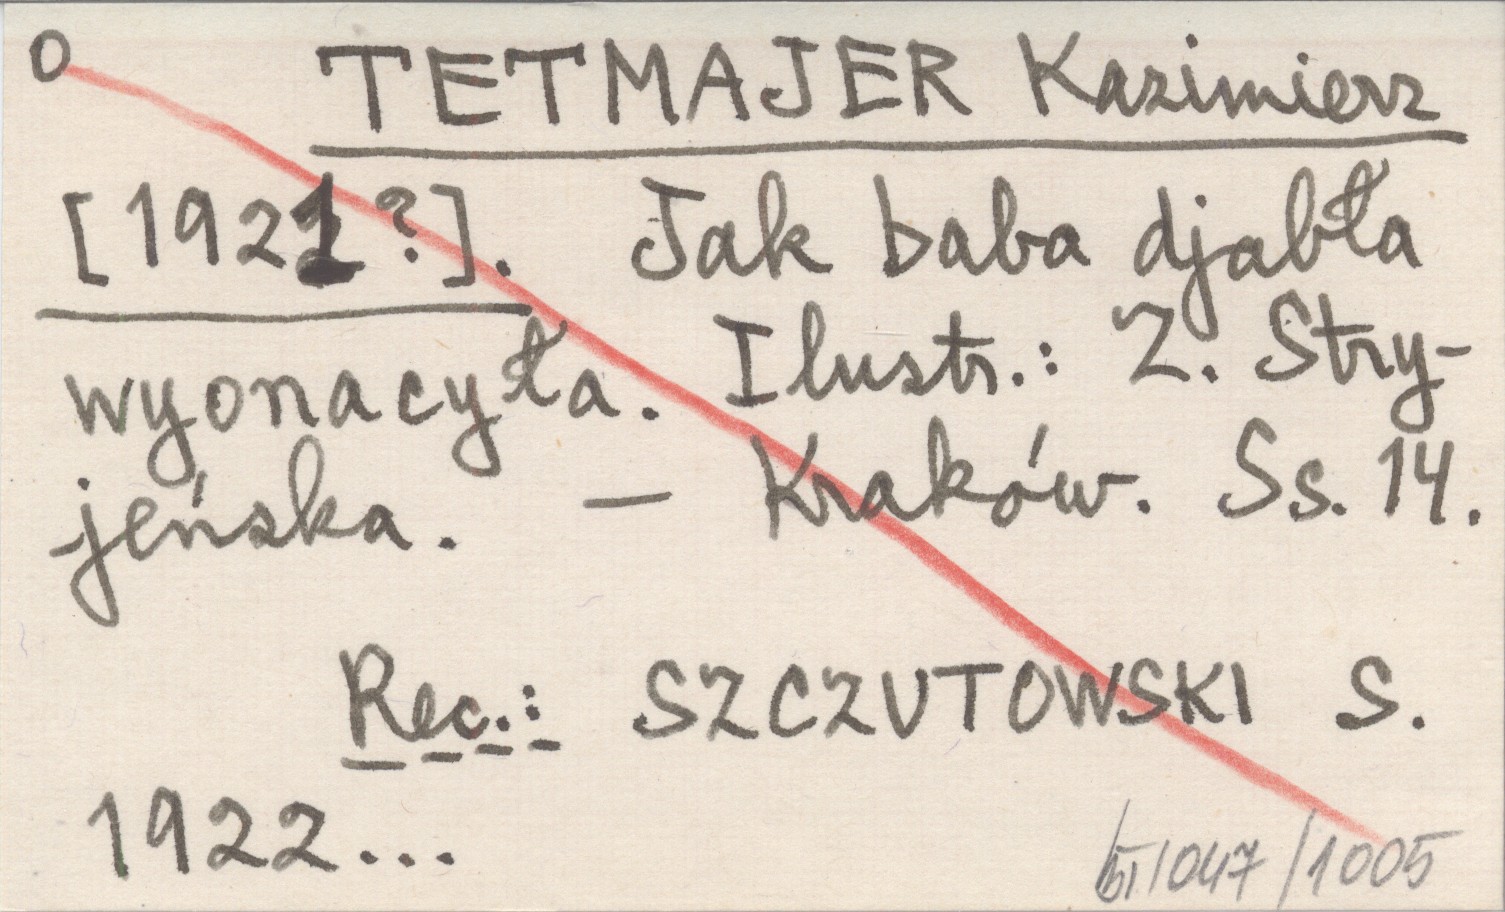 O TETMAJER Kazimierz
[1921?]. Jak baba djabła
wyonacyła. Ilustr.: Z. Stry-
jeńska. — Kraków. Ss. 14.
Rec.: SZCZUTOWSKI S.
1922...
/1047 /1005